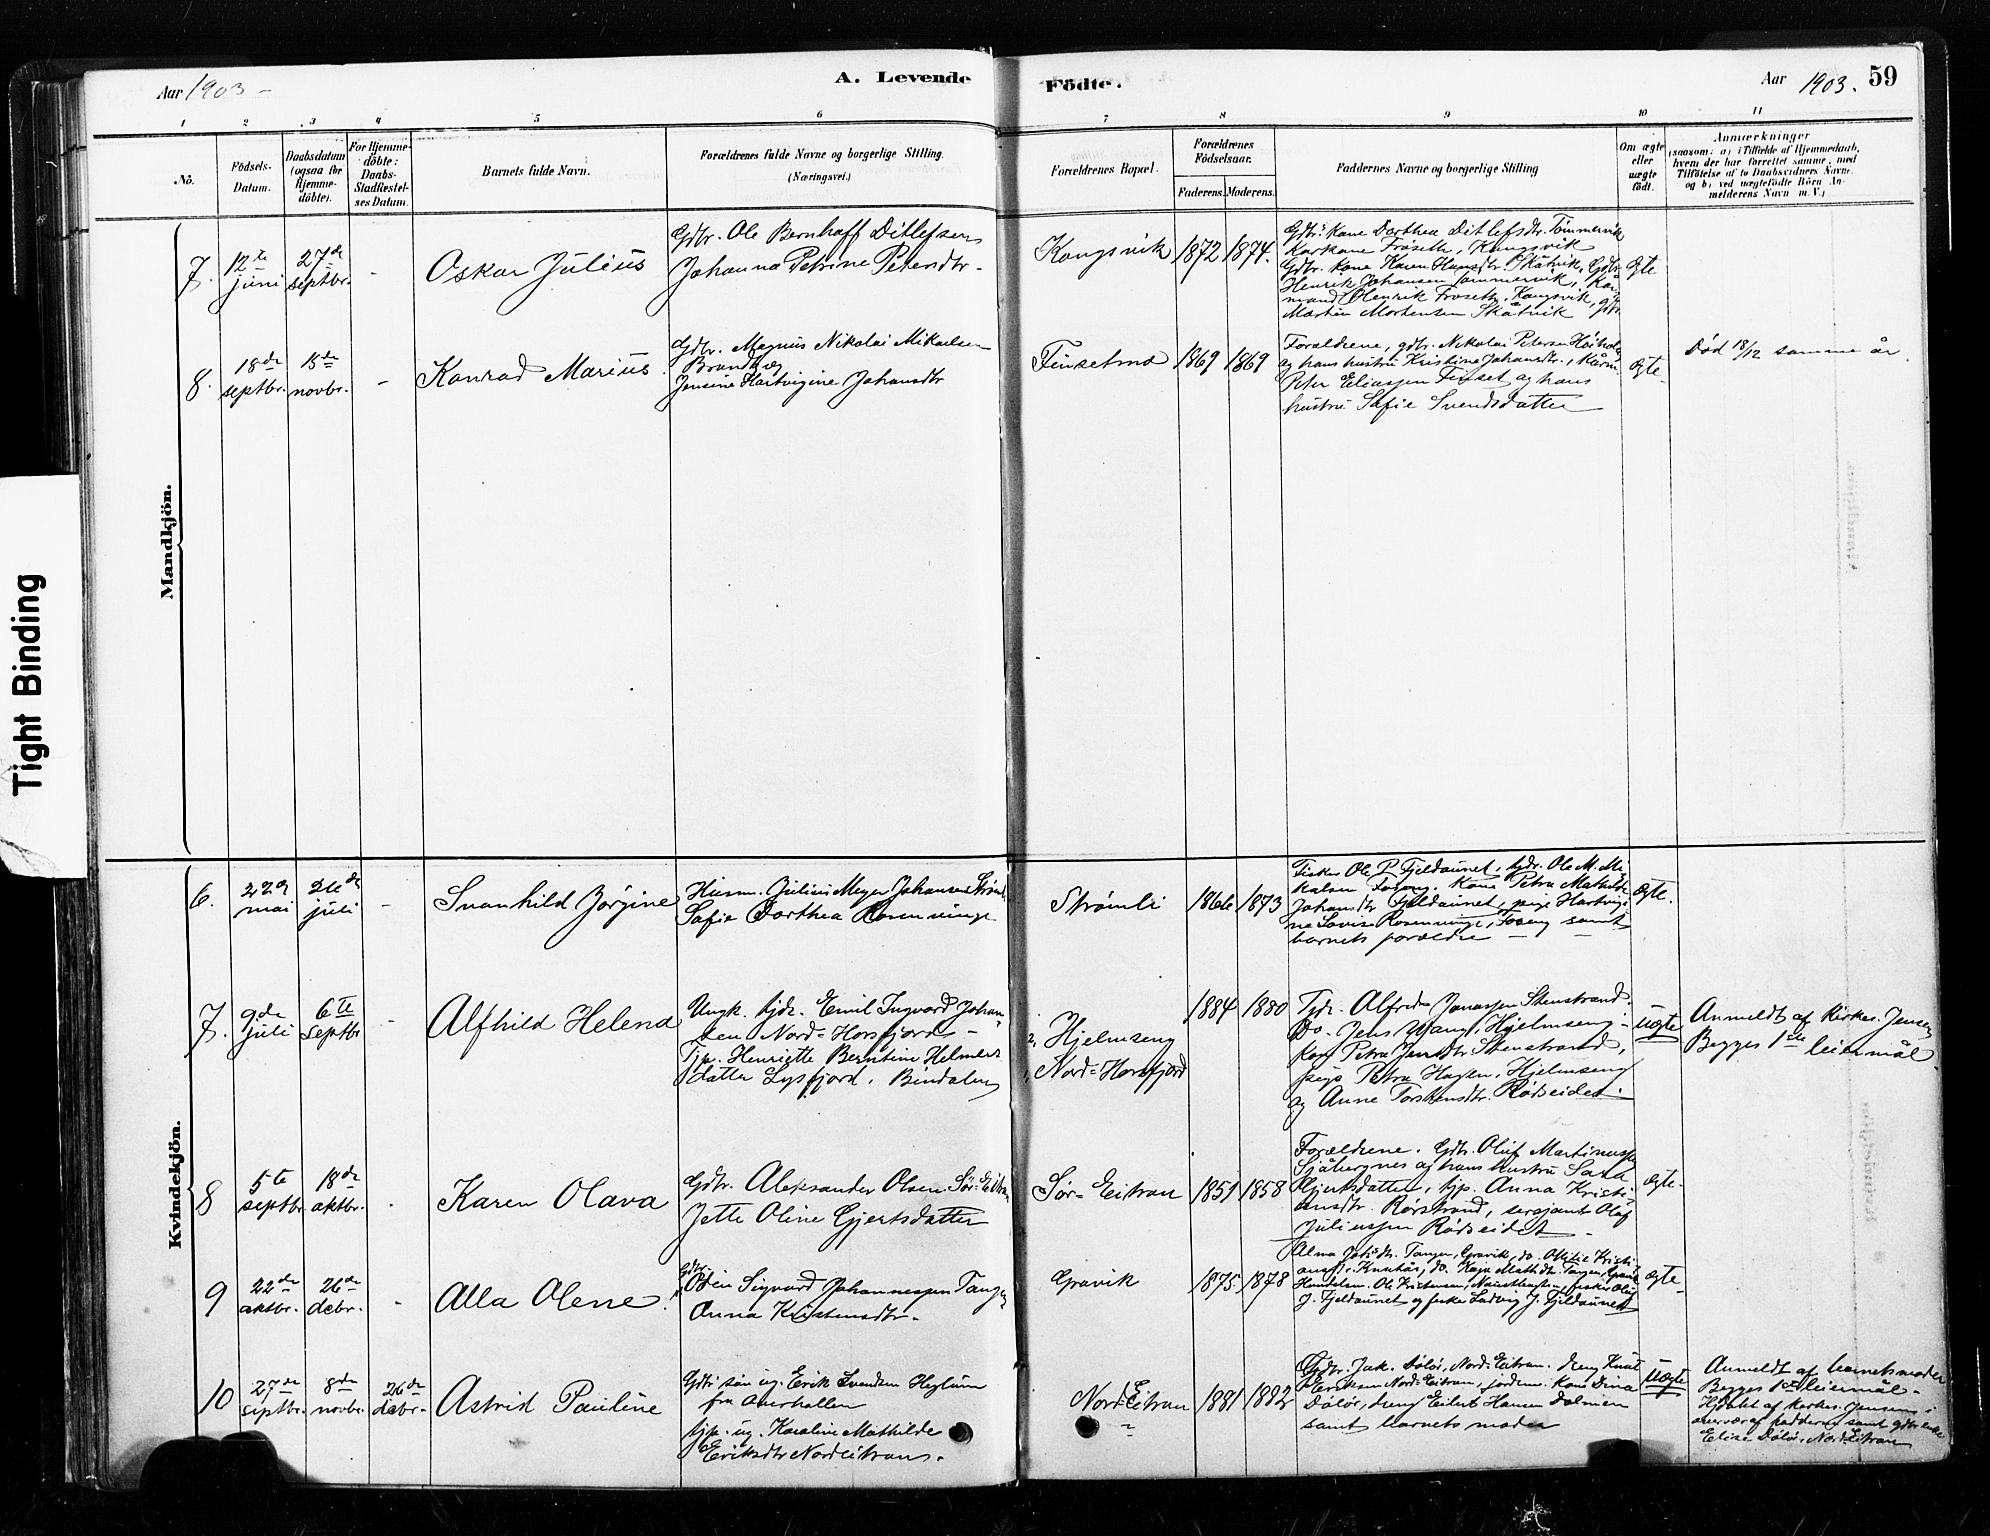 Tight Binding
Aar 1903 –
A. Levende
Födte.
Aar 1903.
59
1 2 3 4 5 6 7 8 9 10 11
No.
Födsels-
Datum.
Daabsdatum
(ogsaa for
Hjemme-
döbte).
For Hjemme-
döbte:
Daabs-
Stadfæstel-
ses Datum.
Barnets fulde Navn.
Forældrenes fulde Navne og borgerlige Stilling.
(Næringsvei.)
Forældrenes Bopæl.
Forældrenes
Födselsaar.
Faderens. Moderens.
Faddernes Navne og borgerlige Stilling
Om ægte
eller
uægte
födt.
Anmærkninger
(saasom: a) i Tilfælde af Hjemmedaab,
hvem der har forrettet samme, med
Tilföielse af to Daabsvidners Navne,
og b) ved uægtefödte Börn An-
melderens Navn m.V.)
Mandkjön.
7.
12te
juni
27de
septbr.
-
Oskar Julius
Gdbr. Ole Bernhoff Ditlefsen
Johanna Petrine Petersdtr.
Kongsvik
1872
1874.
Gdbr. kone Dorthea Ditlefsdtr. Tømmervik
Karkone Froseth, Kongsvik
Gdbr. kone Karen Hansdtr. Skåtvik, Gdbr.
Henrik Johansen Tømmervik, Kår-
mand Olenrik Froseth, Kongsvik, gdbr.
Martin Mortensen Skåtvik
Ægte
8.
18de
septbr.
15de
novbr.
-
Konrad Marius
Gdbr. Magnus Nikolai Mikaelsen
Jensine Hartvigine Johansdtr
Finsetmo
1869
1869
Forældrene, gdbr. Nikolai Petersen
og hans hustru Kristine Johansdtr., Kårm.
Peter Eliassen Finset og hans
hustru Sofie Svendsdatter
Ægte
Død 18/12 samme år.
Kvindekjön.
6.
27de
mai
26de
juli
-
Svanhild Jørgine
Husm. Julius Meyer Johansen Strøml.
Sofie Dorthea Rosenvinge
Strømli
1866
1873
Fisker Ole P. Fjeldaunet, Gdr. Ole M. Mi-
kalsen Foseng. Kone Petra Mathilde
Johansdtr Fjeldaunet, pige Hartvigi-
ne Lovise Rosenvinge, Foseng samt
barnets forældre
Ægte.
7.
9de
juli
6te
septbr.
-
Alfhild Helena
Ungk. tjdr. Emil Ingvard Johan-
sen Nord-Horsfjord –
Tjp. Henriette Berntine Helmers
datter Lysfjord, Bindalen
2, Hjelmseng
1, Nord-Horsfjord
1884
1880
Tjdr. Alfred Jonassen Stenstrand.
Do. Jens Wang, Hjelmseng –
Kone Petra Jensdtr Stenstrand,
pige Petra Hagen, Hjelmseng
og Anne Torstensdtr. Rødseidet.
Uægte
Anmeldt af Kirkes. Jensen
Begges 1ste leiermål
8
5te
septbr.
18de
oktbr.
-
Karen Olava
Gdbr. Aleksander Olsen Sør-Eitran
Jette Oline Gjertsdatter
Sør-Eitran
1851
1858
Forældrene. Gdbr. Oluf Martinussen
Sjåbergnes og hans hustru Sara
Gjertsdatter, tjp. Anna Kristi-
ansdtr. Rørstrand, sersjant Oluf
Juliussen Rødseidet –
Ægte
9
22de
oktbr.
26de
debr.
-
Alla Olene
Gdbr.
Odin Sigvard Johannessen Tangen
Anna Kristensdtr.
Gravik
1875.
1878
Alma Johsdtr. Tangen, Gravik, do. Otilie Kristi-
ansdtr. Knutås, do. Kaja Mathsdtr. Tangen, Gravik
Handelsm. Ole Kristensen, fisker Oluf
J. Fjeldaunet og fisker Ludvig J. Fjeldaunet
Ægte
10
27de
septbr.
8de
novbr.
26de
debr.
Astrid Pauline
Gdbr. søn ug. Erik Svendsen Heglum
fra Overhallen
tjp. ug. Karoline Mathilde
Eriksdtr Nordeitran.
Nord-Eitran
1881
1882
Gdbr. Jak. Dølør, Nord-Eitran. dreng Knut
Eriksen Nord-Eitran, jordem. kone Dina
Dølør, dreng Eilert Hansen Dalmen
samt barnets moder
Uægte
Anmeldt af barnets moder
Begges 1ste leiermål.
Hjdøbt af kirkes. Jensen i
overvær af fadderne samt gdbr. enke
Elise Dølør, Nord-Eitran